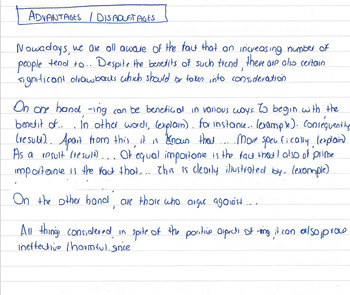 ADVANTAGES / DISADVANTAGES
Nowadays, we are all aware of the fact that an increasing number of
people tend to... Despite the benefits of such trend, there are also certain
significant drawbacks which should be taken into consideration
On one hand, -ing can be beneficial in various ways To begin with the
benefit of... . In other words, (explain). For instance.. (example). Consequently
(result). Apart from this, it is known that .... More specifically, (explain)
As a result (result).... Of equal importance is the fact that / also of prime
importance is the fact that.... This is clearly illustrated by.. (example)
On the other hand, are those who argue against ...
All things considered, in spite of the positive aspects of -ing, it can also prove
ineffective / harmful. since